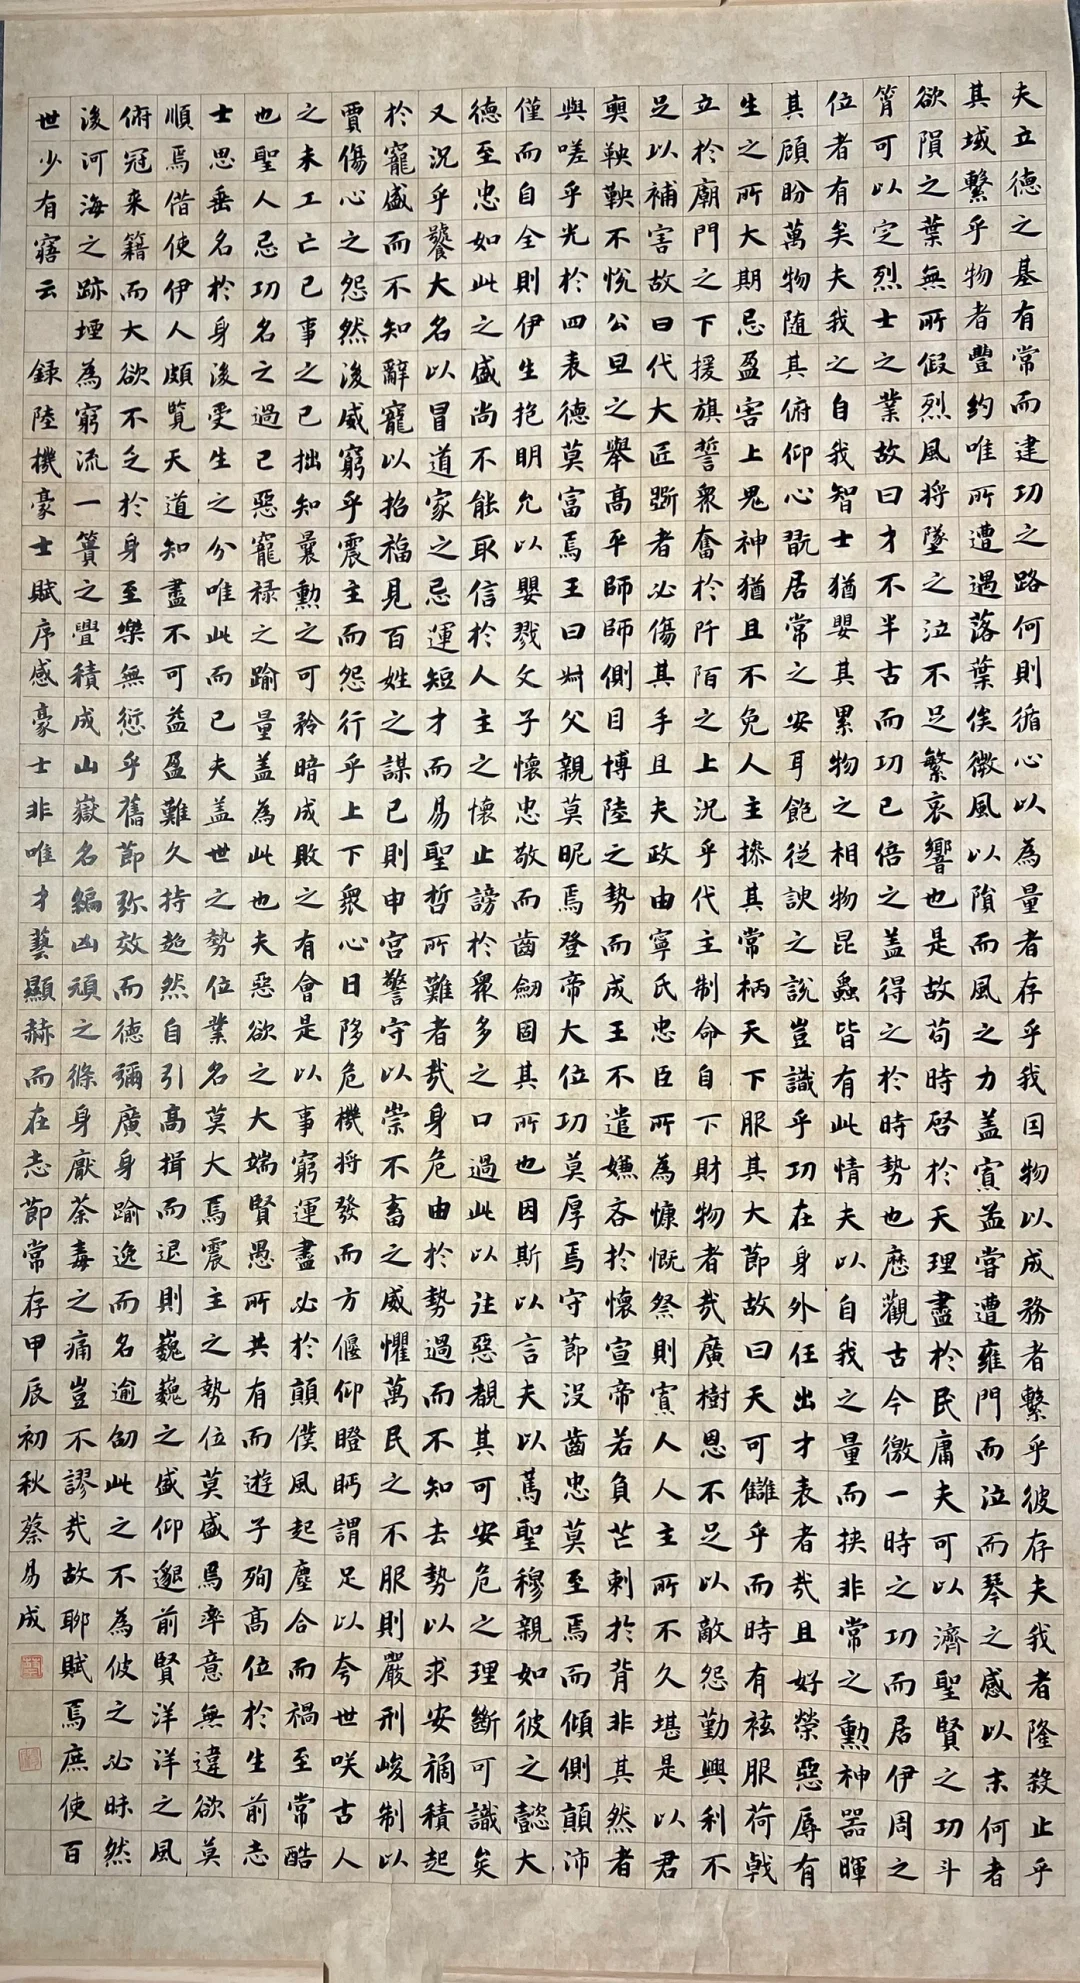 夫立德之基有常而建功之路何則循心以為量者存乎我因物以成務者繫乎彼存夫我者隆殺止乎
其域繫乎物者豐約唯所遭遇落葉俟微風以隕而風之力盖寡孟嘗遭雍門而泣而琴之感以末何者
欲隕之葉無所假烈風將墜之泣不足繁哀響也是故苟時啓於天理盡於民庸夫可以濟聖賢之功斗
筲可以定烈士之業故曰才不半古而功已倍之盖得之於時勢也歷觀古今徼一時之功而居伊周之
位者有矣夫我之自我智士猶嬰其累物之相物昆蟲皆有此情夫以自我之量而挾非常之勳神器暉
其顧盼萬物随其俯仰心翫居常之安耳飽從諛之說豈識乎功在身外任出才表者哉且好榮惡辱有
生之所大期忌盈害上鬼神猶且不免人主操其常柄天下服其大節故曰天可讎乎而時有袨服荷戟
立於廟門之下援旗誓衆奮於阡陌之上況乎代主制命自下財物者哉廣樹恩不足以敵怨勤興利不
足以補害故曰代大匠斲者必傷其手且夫政由寧氏忠臣所為慷慨祭則寡人人主所不久堪是以君
奭鞅鞅不悅公旦之舉高平師師側目博陸之勢而成王不遣嫌吝於懷宣帝若負芒刺於背非其然者
與嗟乎光於四表德莫富焉王曰叔父親莫昵焉登帝大位功莫厚焉守節沒齒忠莫至焉而傾側顛沛
僅而自全則伊生抱明允以嬰戮文子懷忠敬而齒劒固其所也因斯以言夫以篤聖穆親如彼之懿大
德至忠如此之盛尚不能取信於人主之懷止謗於衆多之口過此以往惡覩其可安危之理斷可識矣
又況乎饕大名以冒道家之忌運短才而易聖哲所難者哉身危由於勢過而不知去勢以求安禍積起
於寵盛而不知辭寵以招福見百姓之謀已則申宮警守以崇不畜之威懼萬民之不服則嚴刑峻制以
賈傷心之怨然後威窮乎震主而怨行乎上下衆心日陊危機將發而方偃仰瞪眄謂足以夸世咲古人
之未工亡已事之已拙知曩勳之可矜暗成敗之有會是以事窮運盡必於顛僕風起塵合而禍至常酷
也聖人忌功名之過己惡寵禄之踰量盖為此也夫惡欲之大端賢愚所共有而遊子殉高位於生前志
士思垂名於身後受生之分唯此而已夫盖世之勢位業名莫大焉震主之勢位莫盛焉率意無違欲莫
順焉借使伊人頗覽天道知盡不可益盈難久持超然自引高揖而退則巍巍之盛仰邈前賢洋洋之風
俯冠来籍而大欲不乏於身至樂無愆乎舊節弥效而德彌廣身踰逸而名逾劭此之不為彼之必昧然
後河海之跡堙為窮流一簣之舋積成山嶽名編凶頑之條身厭荼毒之痛豈不謬哉故聊賦焉庶使百
世少有寤云 録陸機豪士賦序感豪士非唯才藝顯赫而在志節常存甲辰初秋蔡易成